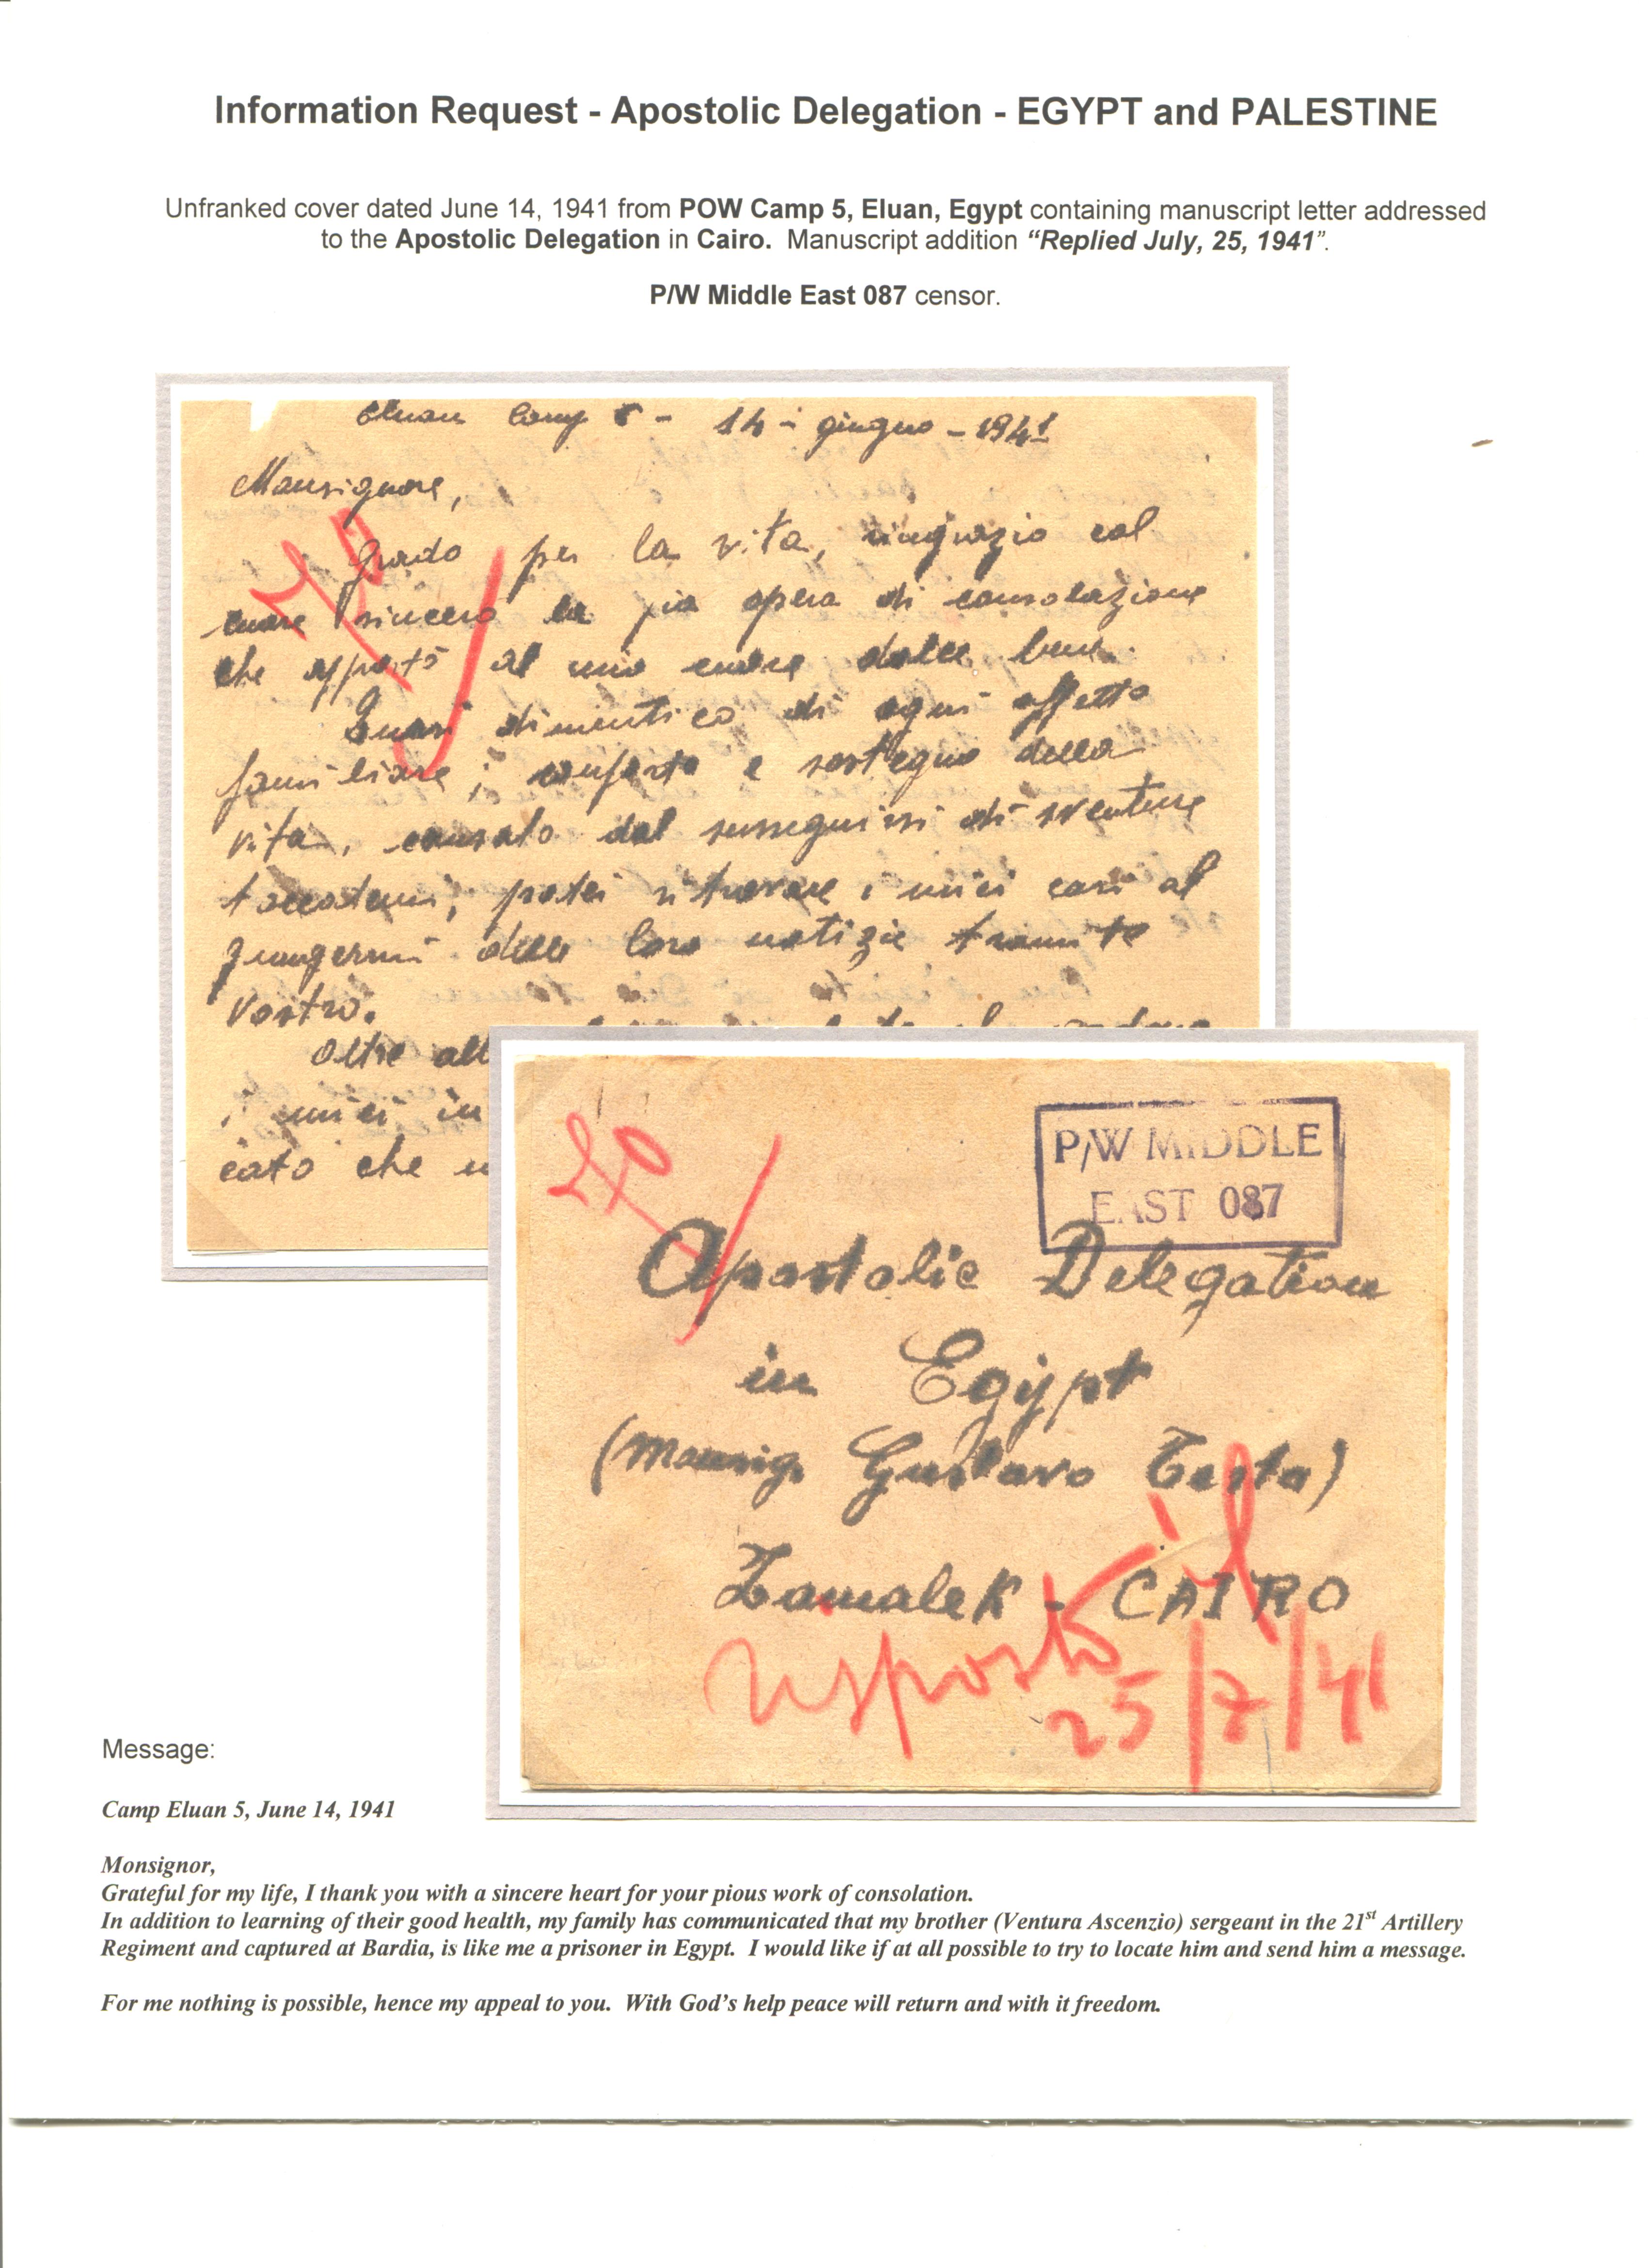 Information Request - Apostolic Delegation - EGYPT and PALESTINE
Unfranked cover dated June 14, 1941 from POW Camp 5, Eluan, Egypt containing manuscript letter addressed
to the Apostolic Delegation in Cairo. Manuscript addition “Replied July, 25, 1941”.
P/W Middle East 087 censor.
Eluan Camp 5 - 14 - giugno - 1941
Monsignore,
Grado per la vita, ringrazio col
cuore sincero la pia opera di consolazione
che apportò al mio cuore dolce bene.
Quasi dimentico di ogni affetto
familiare; conforto e sostegno della
vita, causato dal susseguirsi di sventure
toccatemi, potei ritrovare i miei cari al
giungermi delle loro notizie tramite
Vostro.
Oltre all
i miei in
cato che
P/W MIDDLE
EAST 087
Apostolic Delegation
in Egypt
(Monsig. Gustavo Testa)
Zamalek - CAIRO
risposto il
25/7/41
Message:
Camp Eluan 5, June 14, 1941
Monsignor,
Grateful for my life, I thank you with a sincere heart for your pious work of consolation.
In addition to learning of their good health, my family has communicated that my brother (Ventura Ascenzio) sergeant in the 21st Artillery
Regiment and captured at Bardia, is like me a prisoner in Egypt. I would like if at all possible to try to locate him and send him a message.
For me nothing is possible, hence my appeal to you. With God’s help peace will return and with it freedom.